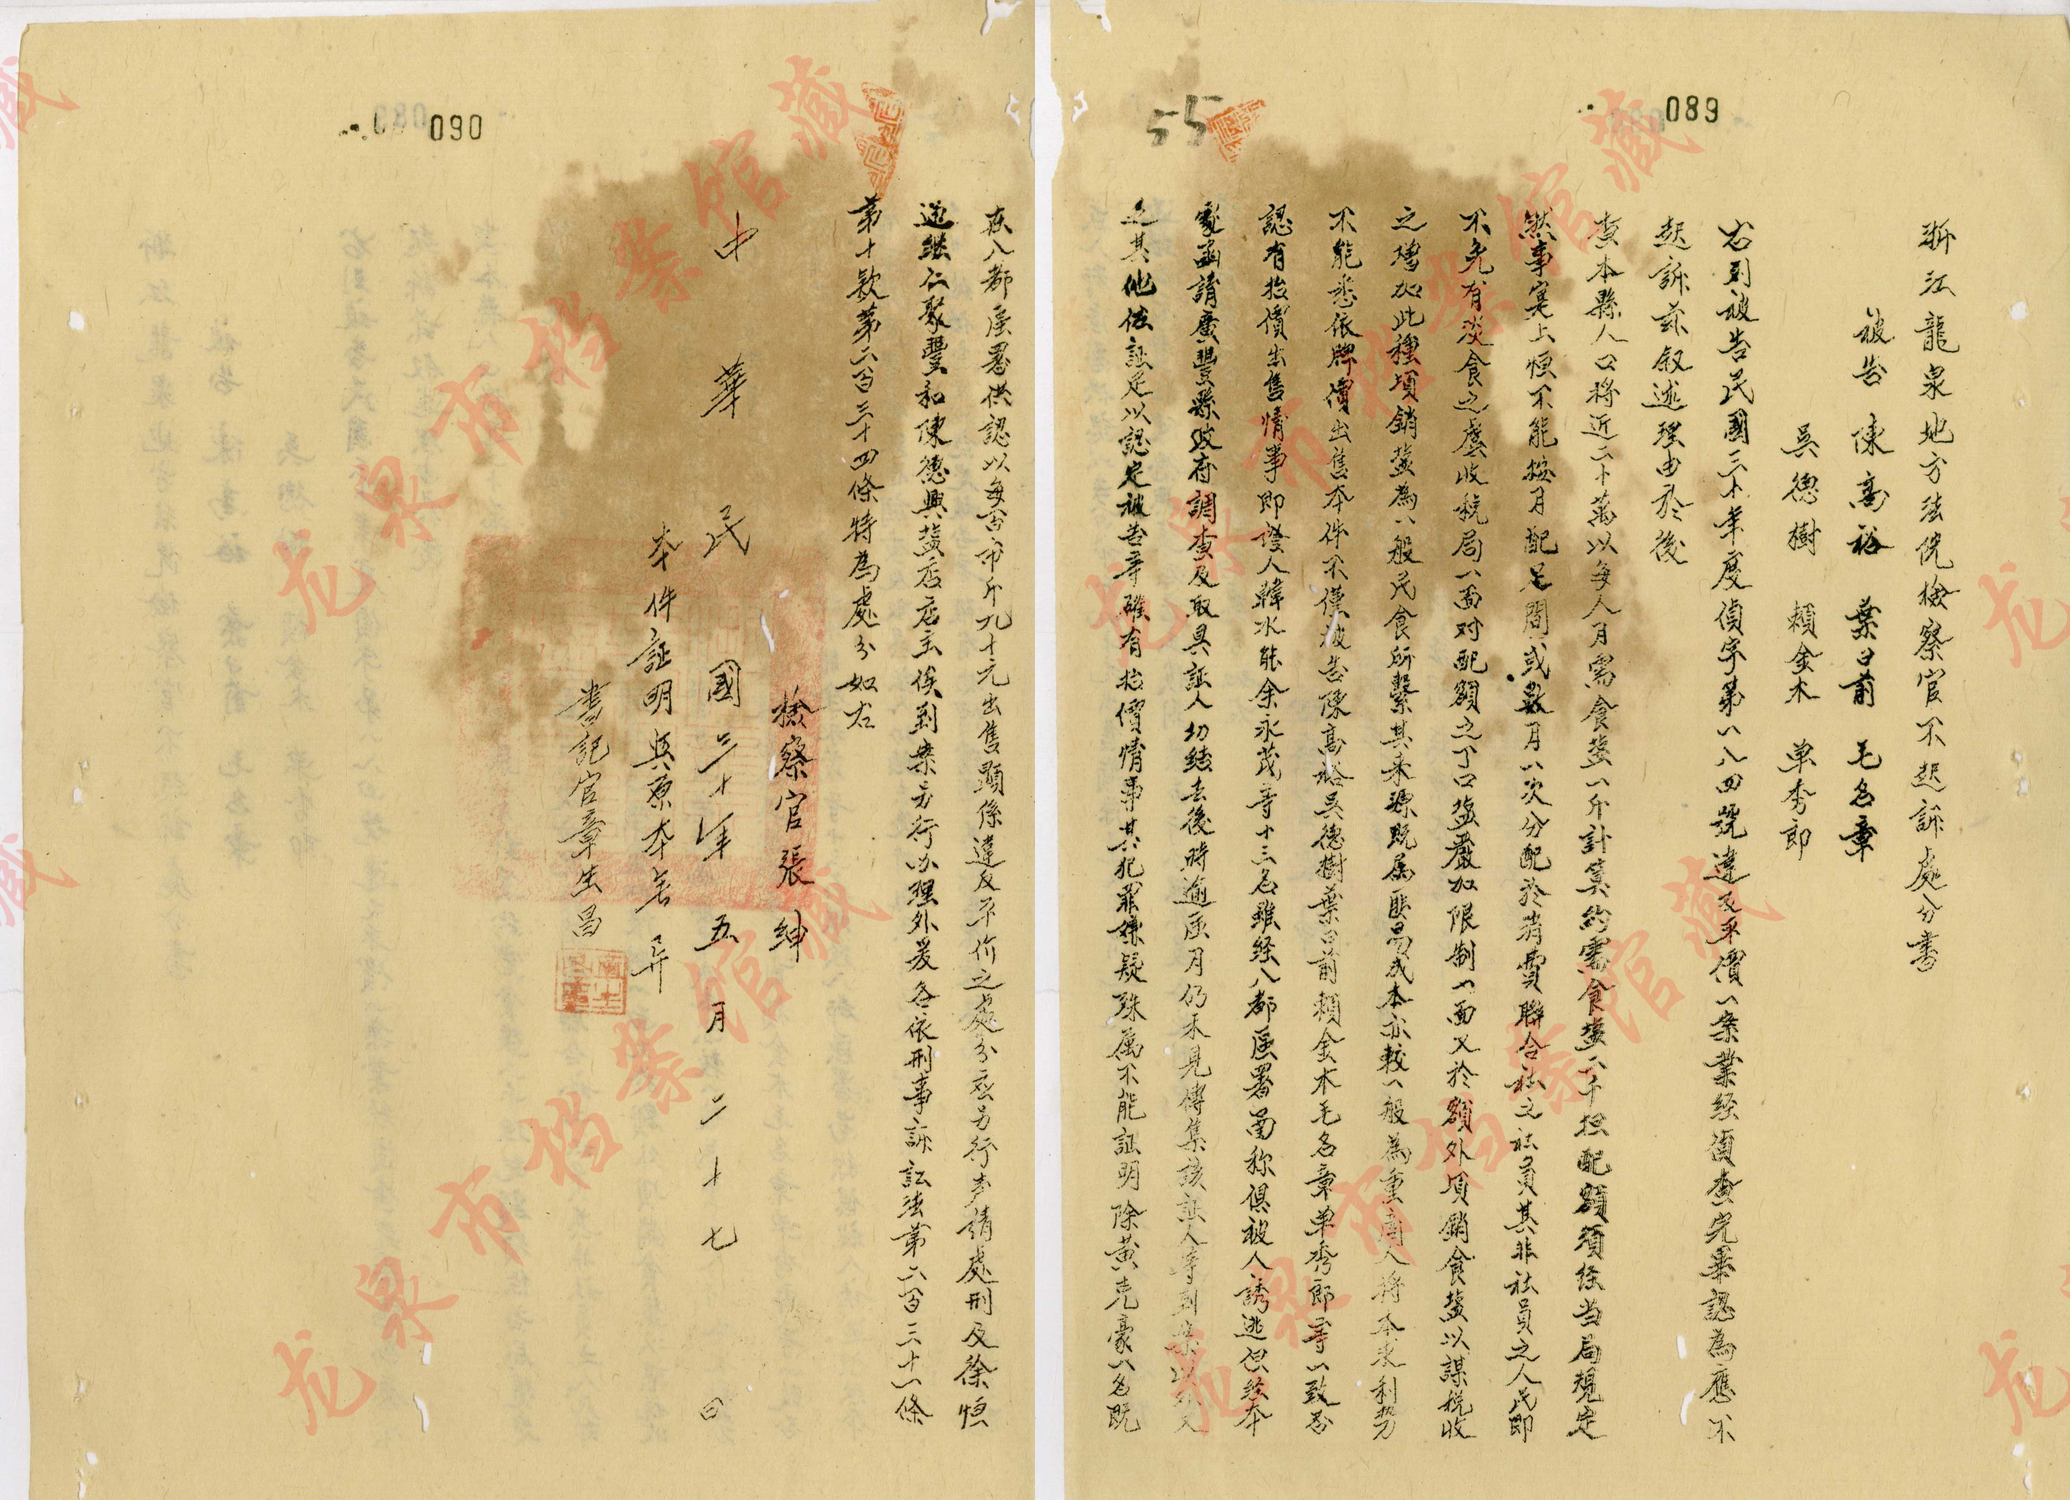 089
55
浙江龍泉地方法院檢察官不起訴處分書
被告 陳高裕 葉日前 毛名章
吳德樹 賴金木 单秀郎
右列被告民國三十年度偵字第一八四號違反平價一案業经偵查完畢認為應不
起訴茲叙述理由於後
查本縣人口将近二十萬以每人月需食塩一斤計算約需食塩二千担配額須经当局規定
然事寔上恒不能按月配足間或數月一次分配於消費聯合社之社員其非社員之人民即
不免有淡食之虞收税局一面对配額之丁口塩嚴加限制一面又於額外項銷食塩以謀税收
之增加此種項銷塩為一般民食所繫其来源既属匪易成本亦較一般為重商人将本求利势
不能悉依牌價出售本件不僅被告陳高裕吳德樹葉日前賴金木毛名章单秀郎等一致否
認有抬價出售情事即證人韓水能余永茂等十三名雖经八都區署啚称俱被人誘逃但经本
處函請廣豐縣政府調查及取具証人切结去後時逾匝月仍未見傳集該証人等到案以外又
乏其他佐証足以認定被告等確有抬價情事其犯罪嫌疑殊属不能証明除黄克豪一名既
090
在八都區署供認以每百市斤九十元出售顯係違反平价之處分应另行声請處刑及徐恒
遠继仁聚豐和陳德興塩店店主俟到案另行办理外爰各依刑事訴訟法第二百三十一條
第十款第二百三十四條特為處分如右
檢察官張紳
中華民國三十年五月二十七日
本件証明與原本無异
書記官章生昌
龙泉市档案馆藏
龙泉市档案馆藏
龙泉市档案馆藏
龙泉市档案馆藏